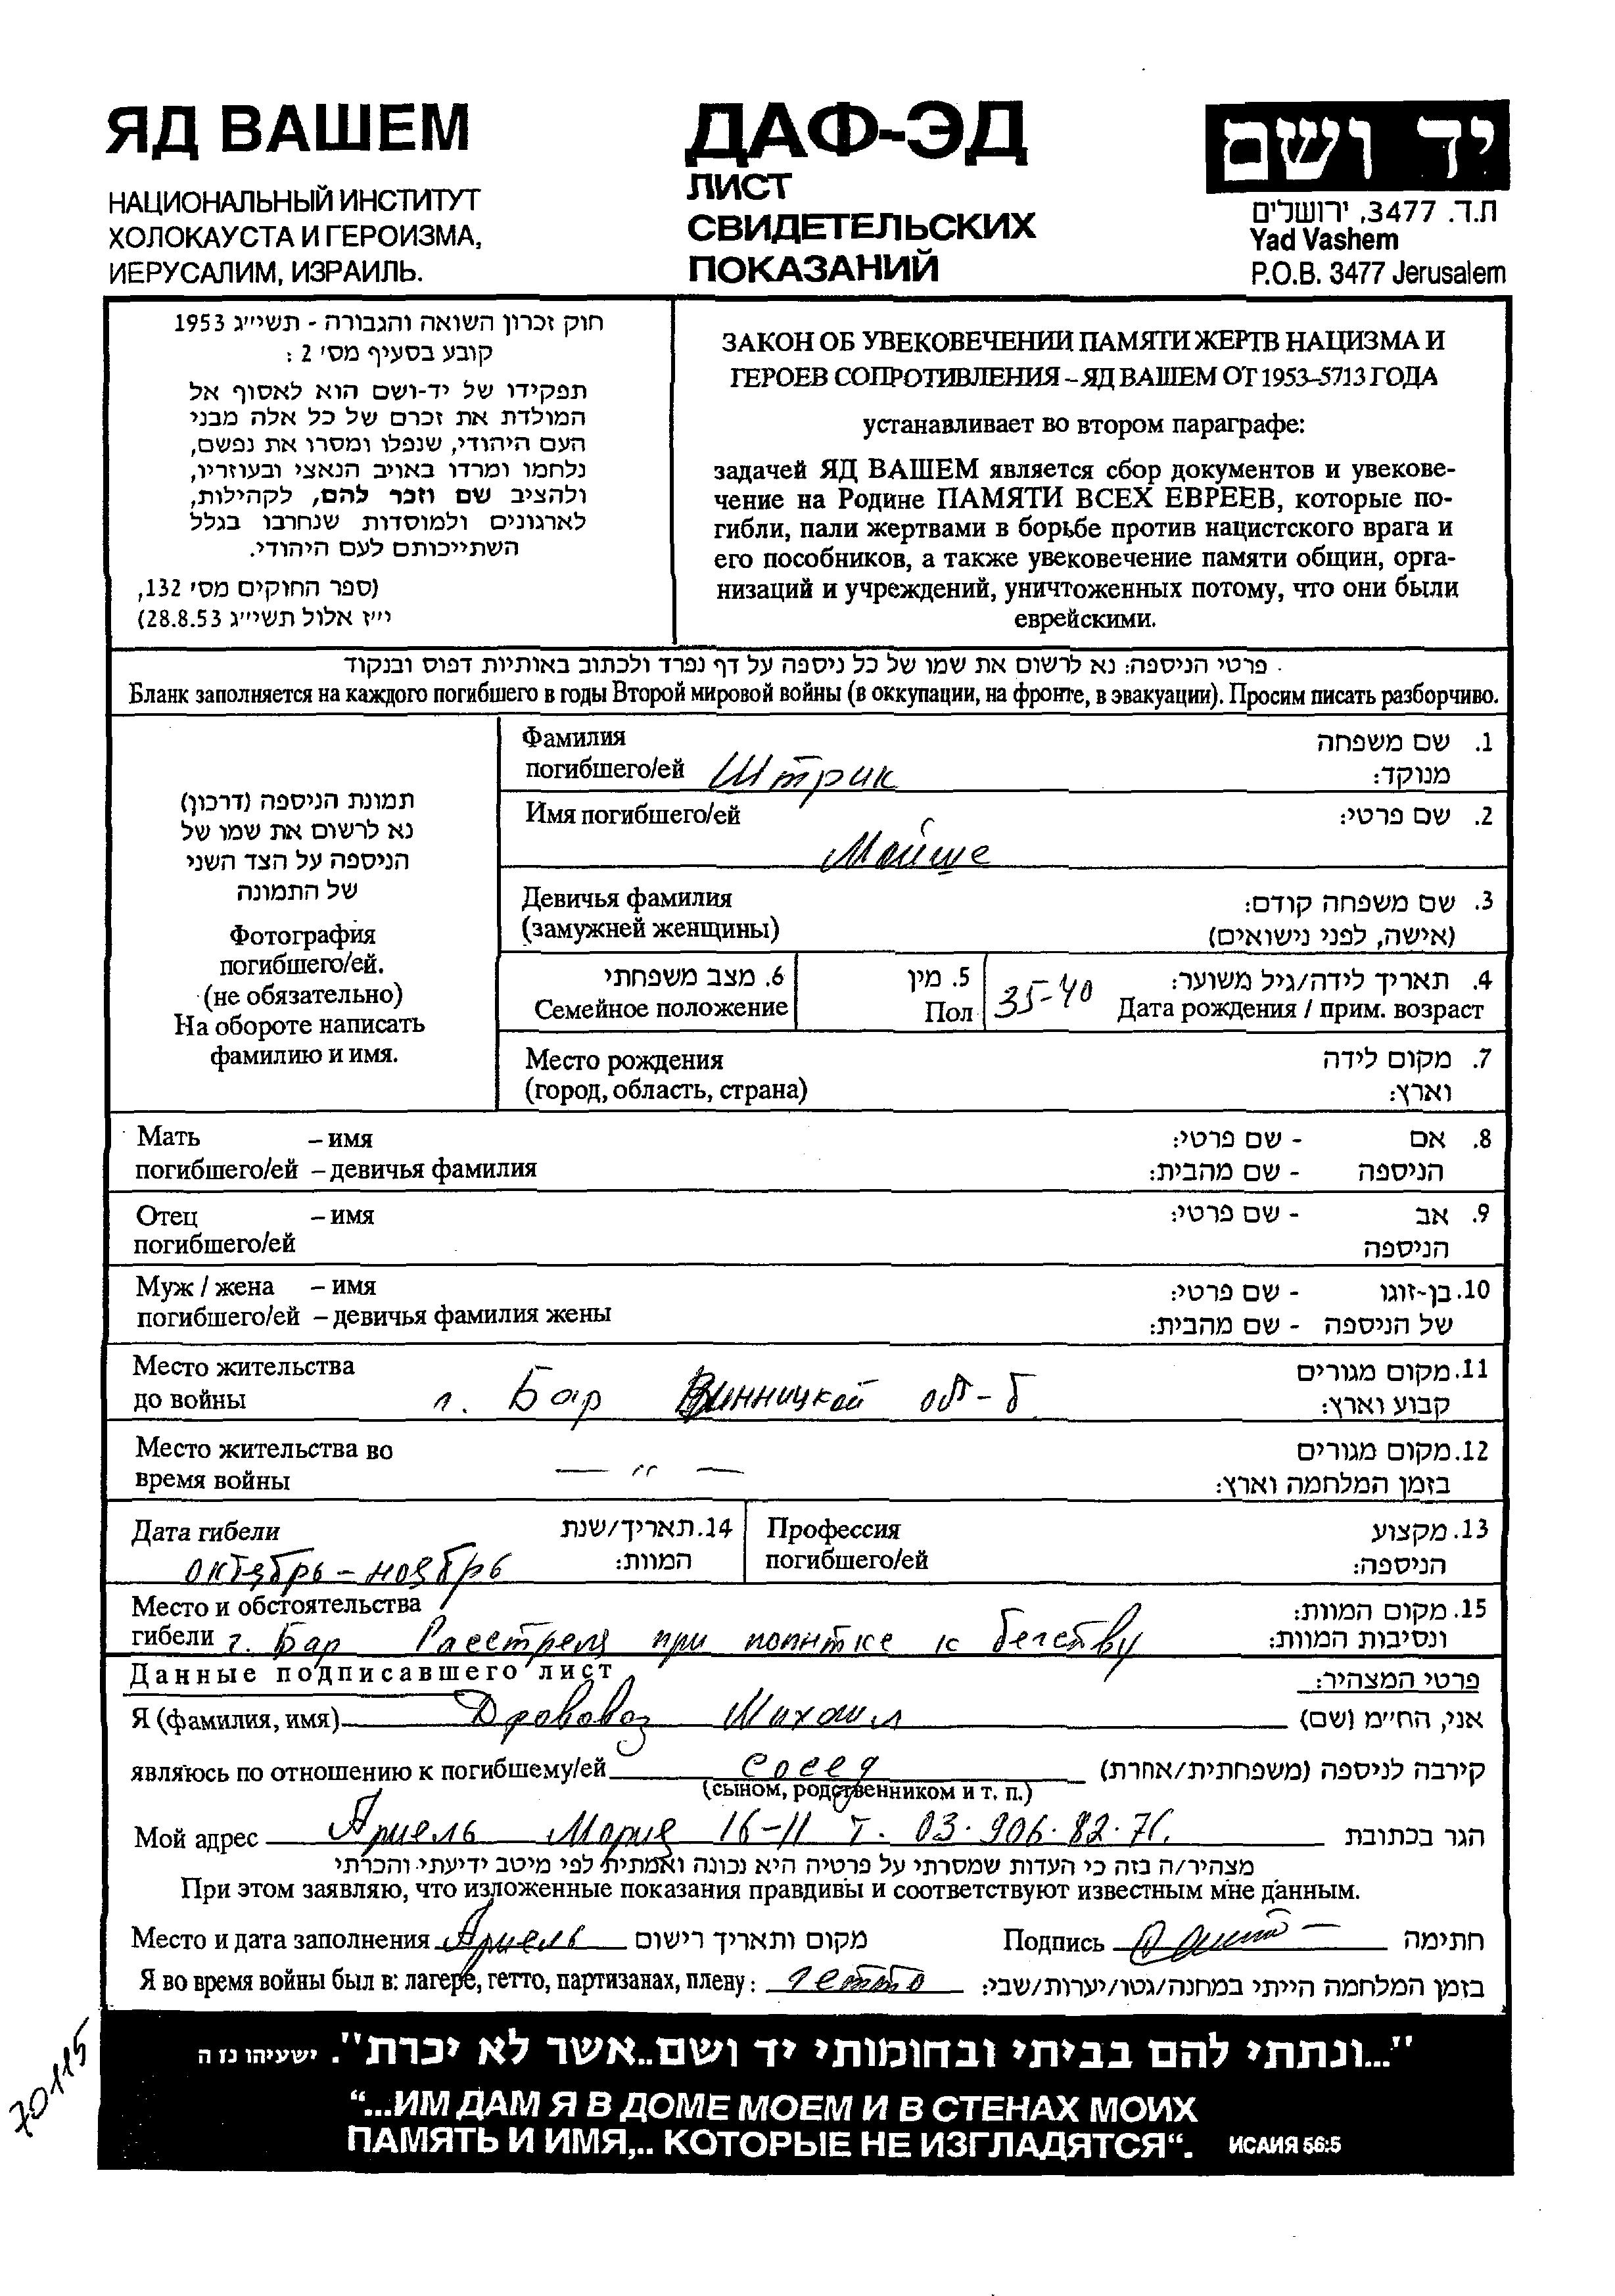 ЯД ВАШЕМ
НАЦИОНАЛЬНЫЙ ИНСТИТУТ
ХОЛОКАУСТА И ГЕРОИЗМА,
ИЕРУСАЛИМ, ИЗРАИЛЬ.
ДАФ-ЭД
ЛИСТ
СВИДЕТЕЛЬСКИХ
ПОКАЗАНИЙ
יד ושם
ת.ד. 3477, ירושלים
Yad Vashem
P.O.B. 3477 Jerusalem
חוק זכרון השואה והגבורה - תשי״ג 1953
קובע בסעיף מס׳ 2 :
תפקידו של יד-ושם הוא לאסוף אל
המולדת את זכרם של כל אלה מבני
העם היהודי, שנפלו ומסרו את נפשם,
נלחמו ומרדו באויב הנאצי ובעוזריו,
ולהציב שם וזכר להם, לקהילות,
לארגונים ולמוסדות שנחרבו בגלל
השתייכותם לעם היהודי.
(ספר החוקים מס׳ 132,
י״ז אלול תשי״ג 28.8.53)
ЗАКОН ОБ УВЕКОВЕЧЕНИИ ПАМЯТИ ЖЕРТВ НАЦИЗМА И
ГЕРОЕВ СОПРОТИВЛЕНИЯ – ЯД ВАШЕМ ОТ 1953–5713 ГОДА
устанавливает во втором параграфе:
задачей ЯД ВАШЕМ является сбор документов и увекове-
чение на Родине ПАМЯТИ ВСЕХ ЕВРЕЕВ, которые по-
гибли, пали жертвами в борьбе против нацистского врага и
его пособников, а также увековечение памяти общин, орга-
низаций и учреждений, уничтоженных потому, что они были
еврейскими.
פרטי הניספה: נא לרשום את שמו של כל ניספה על דף נפרד ולכתוב באותיות דפוס ובנקוד
Бланк заполняется на каждого погибшего в годы Второй мировой войны (в оккупации, на фронте, в эвакуации). Просим писать разборчиво.
תמונת הניספה (דרכון)
נא לרשום את שמו של
הניספה על הצד השני
של התמונה
Фотография
погибшего/ей.
(не обязательно)
На обороте написать
фамилию и имя.
Фамилия 1. שם משפחה
погибшего/ей Штрик מנוקד:
Имя погибшего/ей 2. שם פרטי:
Мойше
Девичья фамилия 3. שם משפחה קודם:
(замужней женщины) (אישה, לפני נישואים)
6. מצב משפחתי 5. מין 4. תאריך לידה/גיל משוער:
Семейное положение Пол 35-40 Дата рождения / прим. возраст
Место рождения 7. מקום לידה
(город, область, страна) וארץ:
Мать – имя 8. אם - שם פרטי:
погибшего/ей – девичья фамилия הניספה - שם מהבית:
Отец – имя 9. אב - שם פרטי:
погибшего/ей הניספה
Муж / жена – имя 10. בן-זוגו - שם פרטי:
погибшего/ей – девичья фамилия жены של הניספה - שם מהבית:
Место жительства 11. מקום מגורים
до войны г. Бар Винницкой обл-б קבוע וארץ:
Место жительства во 12. מקום מגורים
время войны — " — בזמן המלחמה וארץ:
Дата гибели 14. תאריך/שנת Профессия 13. מקצוע
октябрь - ноябрь המוות: погибшего/ей הניספה:
Место и обстоятельства 15. מקום המוות:
гибели г. Бар Расстреля при попытке к бегству ונסיבות המוות:
Данные подписавшего лист פרטי המצהיר:
Я (фамилия, имя) Дрововоз Михаил אני, הח״מ (שם)
являюсь по отношению к погибшему/ей сосед קירבה לניספה (משפחתית/אחרת)
(сыном, родственником и т. п.)
Мой адрес Ариель Мория 16-11 т. 03.906.82.76. הגר בכתובת
מצהיר/ה בזה כי העדות שמסרתי על פרטיה היא נכונה ואמתית לפי מיטב ידיעתי והכרתי
При этом заявляю, что изложенные показания правдивы и соответствуют известным мне данным.
Место и дата заполнения Ариель מקום ותאריך רישום Подпись חתימה
Я во время войны был в: лагере, гетто, партизанах, плену: гетто בזמן המלחמה הייתי במחנה/גטו/יערות/שבי:
70115
"...ונתתי להם בביתי ובחומותי יד ושם..אשר לא יכרת". ישעיהו נז ה
“...ИМ ДАМ Я В ДОМЕ МОЕМ И В СТЕНАХ МОИХ
ПАМЯТЬ И ИМЯ,.. КОТОРЫЕ НЕ ИЗГЛАДЯТСЯ“. ИСАИЯ 56:5